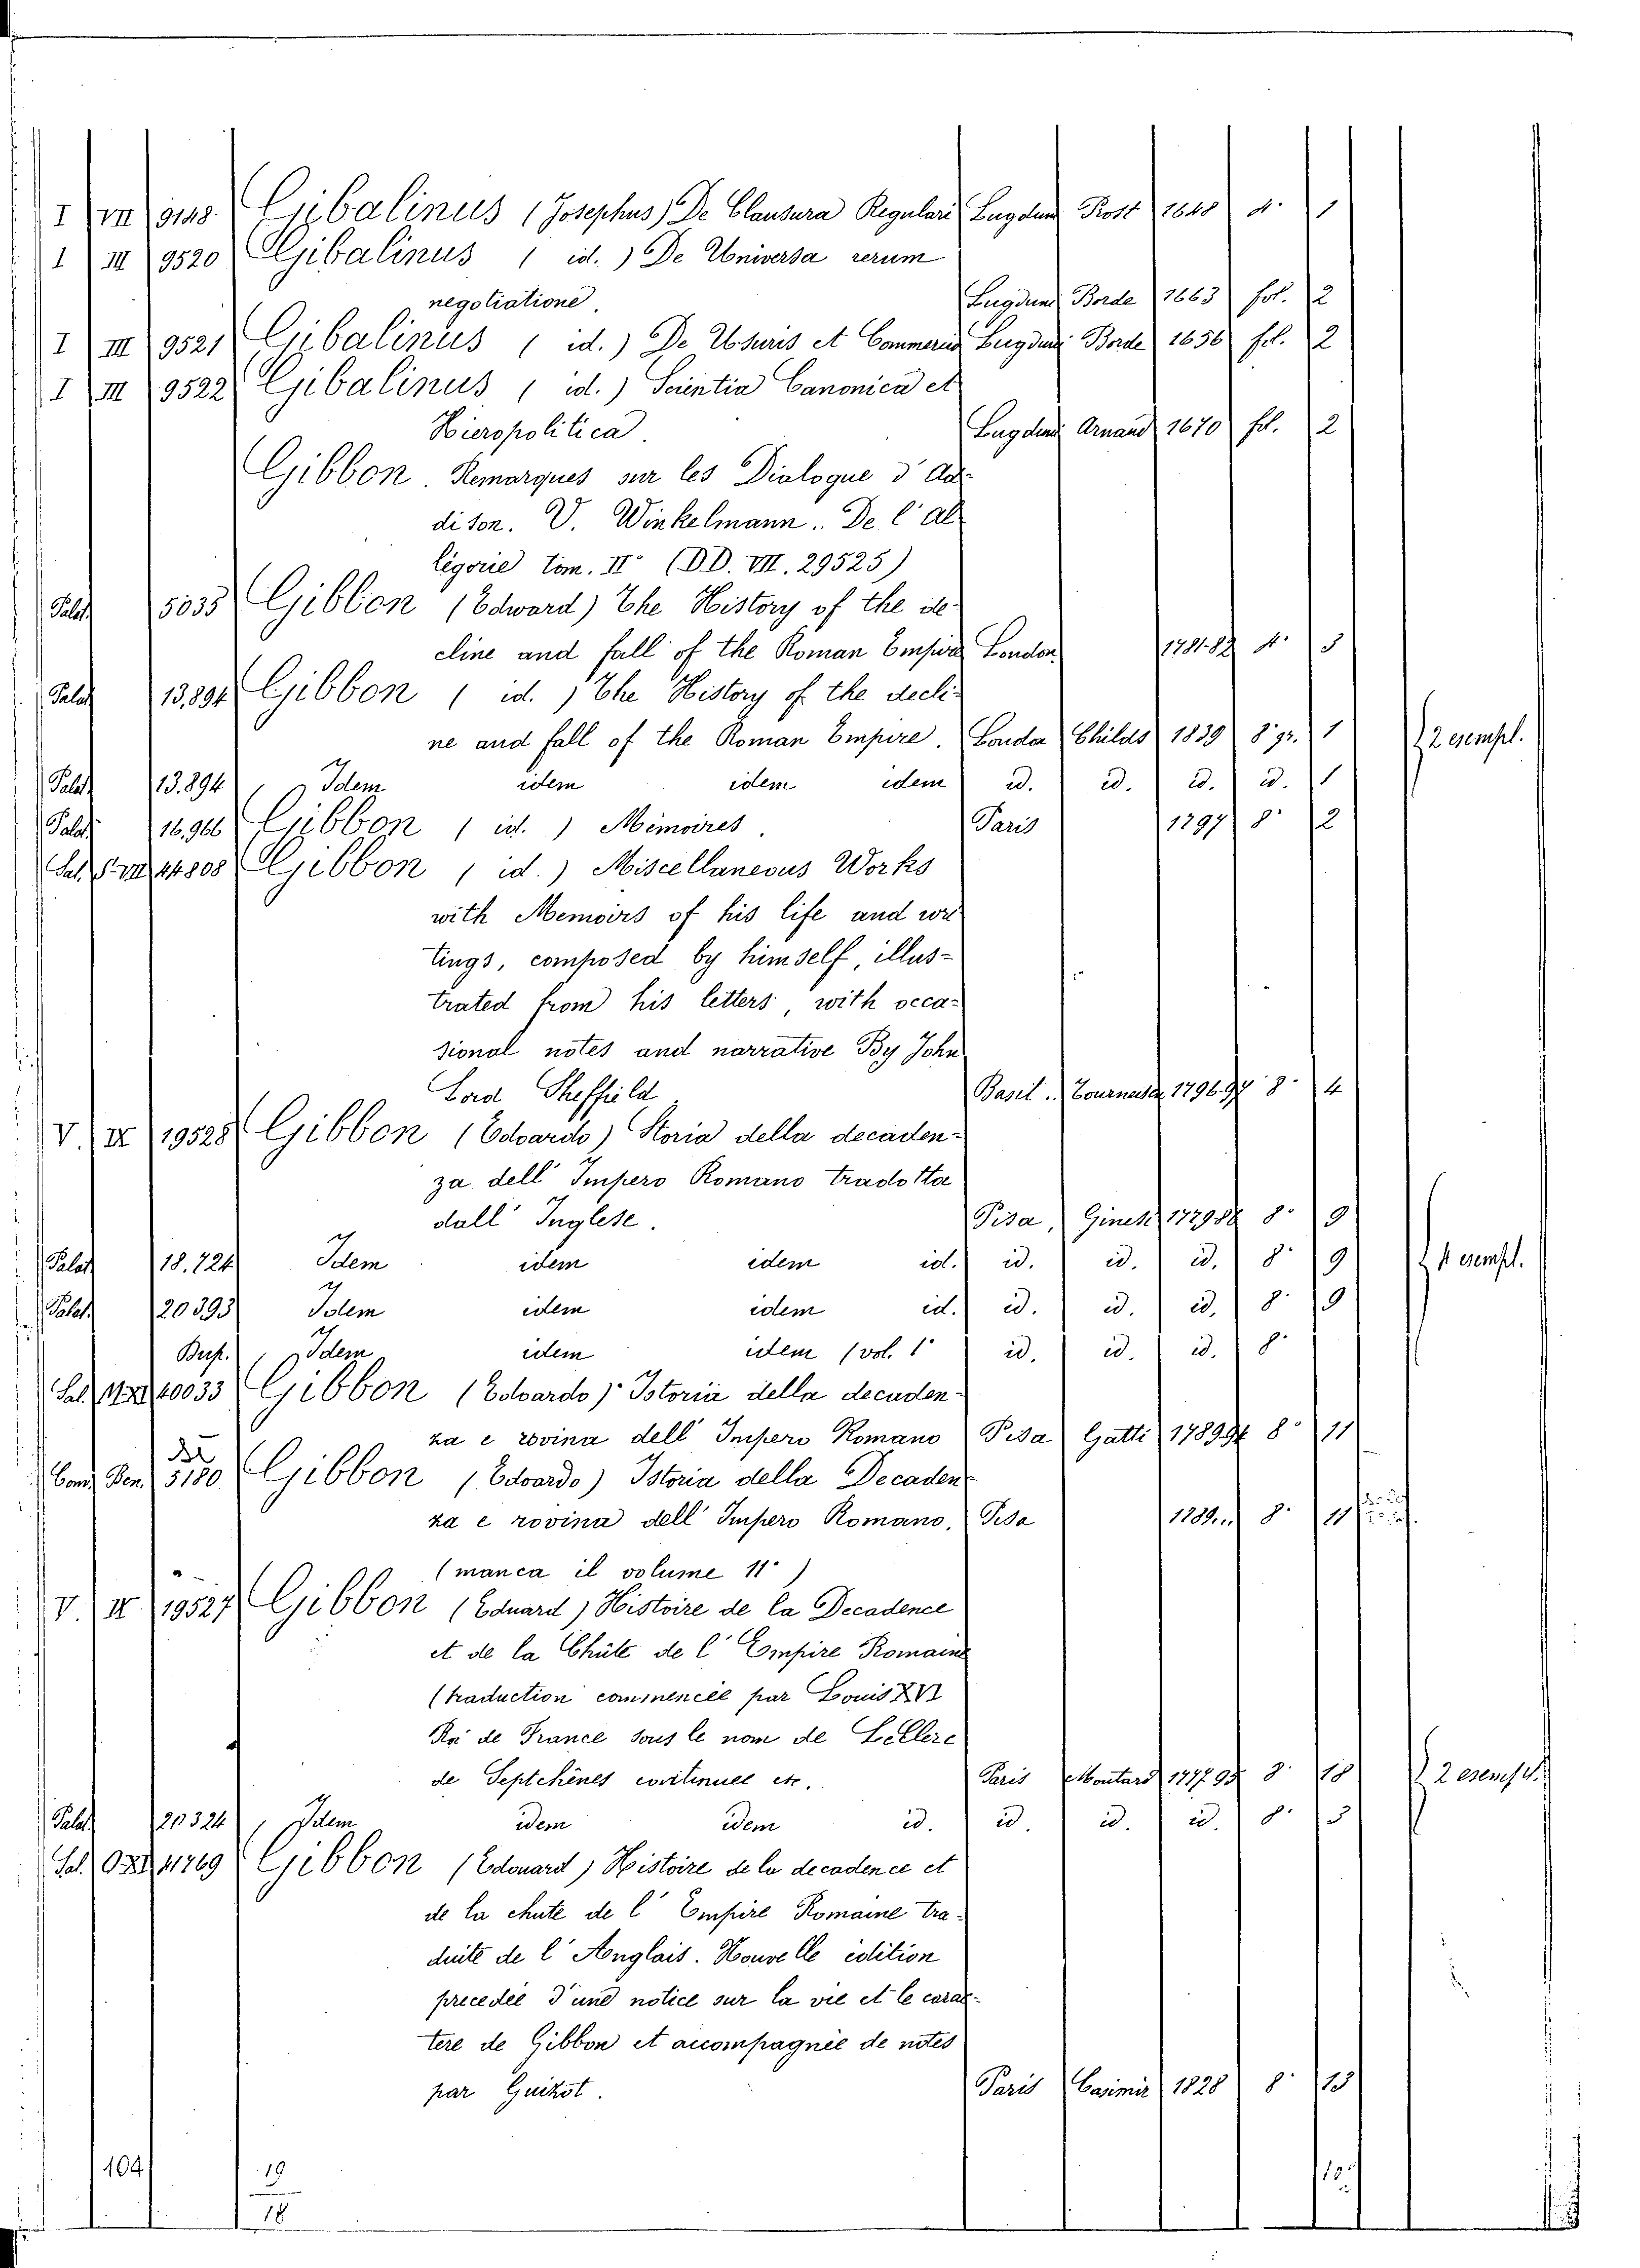 I VII 9148. Gibalinus (Josephus) De Clausura Regulari Lugduni Post 1648 4.° 1
I III 9520 Gibalinus ( id. ) De Universa rerum
negotiatione. Lugduni Borde 1663 fol. 2
I III 9521 Gibalinus ( id. ) De Usuris et Commerciis Lugduni Borde 1656 fol. 2
I III 9522 Gibalinus ( id. ) Scientia Canonica et
Hieropolitica. Lugduni Arnaud 1670 fol. 2
Gibbon. Remarques sur les Dialogue d'Ad-
dison. V. Winkelmann. De l'al
ligorie tom. II° (DD. VII. 29525)
Palat. 5035 Gibbon (Edward) The History of the de-
cline and fall of the Roman Empire London 1781-82 4.°
Palat. 13,894 Gibbon ( id. ) The History of the decli-
ne and fall of the Roman Empire. London Childs 1839 8° gr. 1 2 esempl.
Palat. 13.894 Idem idem idem idem id. id. id. id. 1
Palat. 16,966 Gibbon ( id. ) Mimoires. Paris 1797 8° 2
44808 Gibbon ( id. ) Miscellaneous Works
with Memoirs of his life and wri
tings, composed by himself, illus-
trated from his letters, with occa-
sional notes and narrative By John
Lord Sheffield Basil. Tourneisen 1796.97 8° 4
V. IX 19528 Gibbon (Edoardo) Storia della decaden-
za dell' Impero Romano tradotta
dall' Inglese. Pisa, Ginesi 8° 9
Palat. 18.724 Idem idem idem id. id. id. id. 8° 9 4 esempl.
Palat. 20393 Idem idem idem id. id. id. id. 8° 9
Idem idem idem (vol. 1° id. id. id. 8°
40033 Gibbon (Edoardo) Istoria della decaden-
za e rovina dell' Impero Romano Pisa Gatti 1789.94 8° 11
5180 Gibbon (Edoardo) Istoria della Decaden
za e rovina dell' Impero Romano. Pisa 1789... 8° 11
(manca il volume 11°)
V. IX 19527 Gibbon (Eduard) Histoire de la Decadence
et de la Chûte de l'Empire Romaine
(traduction commencée par Louis XVI
Roi de France sous le nom de Leclerc
de Septchênes continuée etc. Paris Moutard 1777.95 8° 18 2 esempl.
Palat. 20324 Idem idem idem id. id. id. id. 8°
41769 Gibbon (Edouard) Histoire de la decadence et
de la chute de l'Empire Romaine tra-
duite de l'Anglais. Nouvelle édition
precedée d'une notice sur la vie et le carac-
tere de Gibbon et accompagnée de notes
par Guizot. Paris Casimir 1828 8° 13
104 19
18